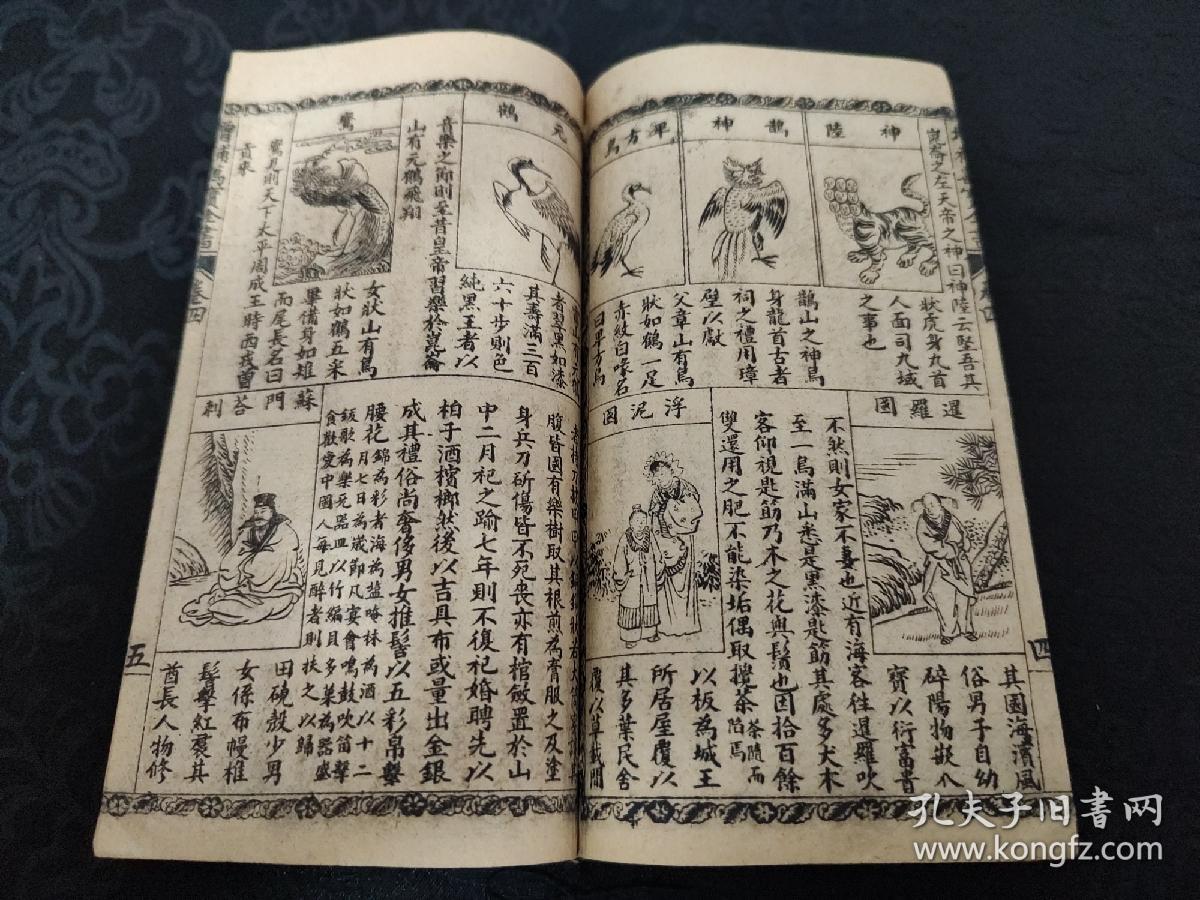 神陸
崑崙之左天帝之神曰神陸云堅吾其
狀虎身九首
人面司九域
之事也
鵲神
鵲山之神鳥
身龍首古者
祠之禮用璋
璧以獻
畢方鳥
父章山有鳥
狀如鶴一足
赤紋白喙名
曰畢方鳥
暹羅國
其國海濱風
俗男子自幼
碎陽物嵌八
寶以衍富貴
不然則女家不妻也近有海客往暹羅吹
至一島滿山悉是黑漆匙筯其處多大木
客仰視匙筯乃木之花與鬚也因拾百餘
雙還用之肥不能染垢偶取攪茶茶隨而陷焉
浮泥國
以板為城王
所居屋覆以
其多葉民舍
覆以草
四
元鶴
者翌黑如漆
其壽滿三百
六十步則色
純黑王者以
音樂之節則至昔皇帝習樂於崑崙
山有元鶴飛翔
鸞
女狀山有鳥
狀如鶴五采
畢備身如雉
而尾長名曰
鸞見則天下太平周成王時西戎曾
貢來
腹皆國有樂樹取其根煎為膏服之及塗
身兵刀所傷皆不死喪亦有棺斂置於山
中二月祀之踰七年則不復祀婚聘先以
柏子酒檳榔然後以吉具布或量出金銀
成其禮俗尚奢侈男女推髻以五彩帛擊
腰花錦為彩者海為盐唵抹為酒以十二
月七日為歲節凡宴會鳴鼓吹笛擊
鈸歌為樂死器皿以竹編貝多葉為器盛
食歡愛中國人每見醉者則扶之以歸
蘇門荅剌
田磽穀少男
女係布幔椎
髻擊紅裙其
酋長人物修
卷四
五
孔夫子旧書网
www.kongfz.com